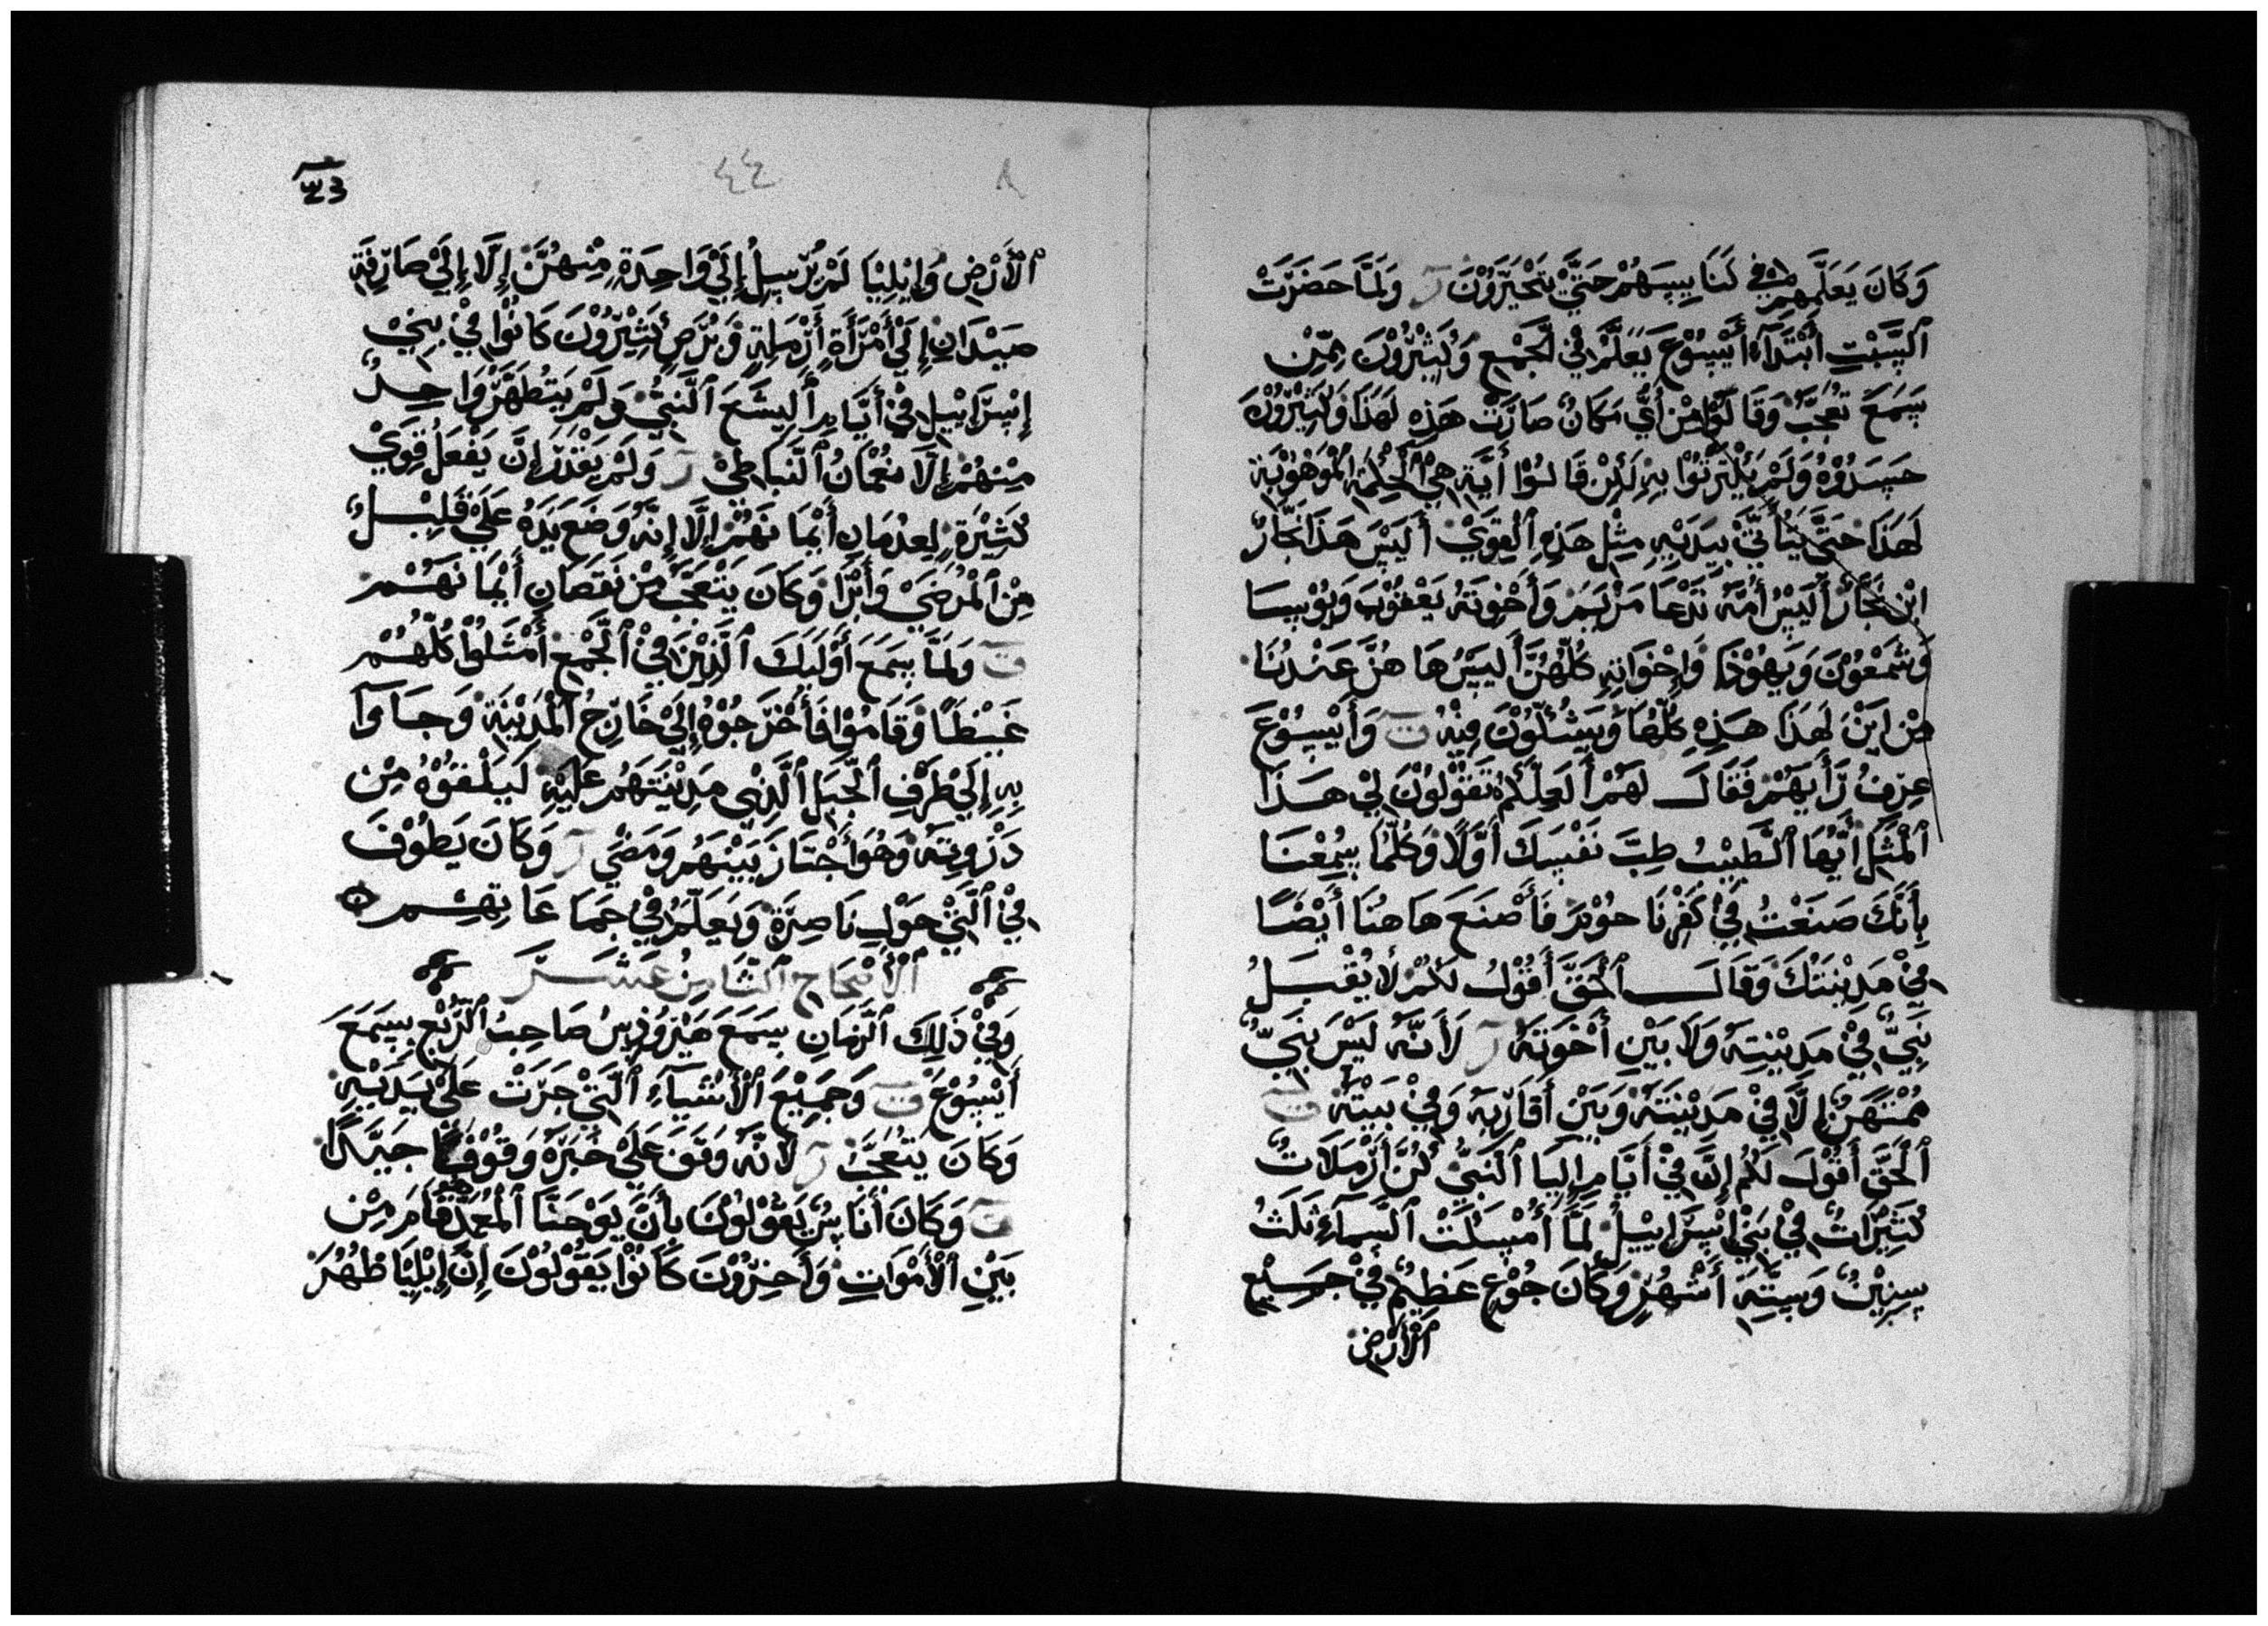 وَكَانَ يَعَلِّمهِمْ فِي كَنَايِسَهُمْ حَتَّيْ يَتْحَيَّرَوْنَ ر وَلَمَّا حَضَرَتْ
اَلسَّبْتِ اَبْتَدَآءَ أَيْسُوْعَ يَعَلَّمْ فِيْ اَلْجَمْعِ وَكَثِيْرُوْنَ مِمِّنْ
سَمَعَ تَعَجَّبُ وَقَالَوْا مِنْ أَيِّ مَكَانٌ صَارَتْ هَذِهِ لَهَذَا وَكَثِيْرُوْنَ
حَسَدُوْهُ وَلَمْ يَلْتَرثُوْا بِهِ لَكِنْ قَالُوْا أَيَّة هِيَ اَلْحِكْمَة اَلْمَوْهُوْبَة
لَهَذَا حَتَّي يَتَأَتَّيْ بِيَدَيْهِ مِثْل هَذِهِ اَلْقِوَيْ أَلَيْسَ هَذَا نَجَّارٌ
ابْن نَجَّارٌ أَلَيْسَ أُمَّهُ تَدْعَا مَرْيَمَ وَأَخْوِتَهُ يَعْقُوْبَ وَيُوْسَا
وَشَمْعُوْنَ وَيَهُوْذَا وَإِخْوَاتِهِ كُلّهُنَّ أَلَيْسَ هَا هُنَّ عَنْدُنَا
مِنْ ايْنَ لَهَذَا هَذِهِ كُلّهَا وَيَشُكُّوْنَ فِيْهُ ت وَأَيْسُوْعَ
عِرِفُ رَأَيَهُمْ فَقَالَ لَهُمْ أَلَعِلَّكُمْ تَقُوْلُوْنَ لِيْ هَذَا
اَلْمَثَل أَيُّهَا اَلْطَبِيْبُ طِبَّ نَفْسِكَ أَوَّلًا وَكُلَّمَا سِمُعْنَا
بِأَنَّكَ صَنَعْتُ فِيْ كَفْرنَا حوْمَ فَأَصْنَعَ هَا هُنَا أَيْضًا
فِيْ مَدِيْنَتُكَ وَقَالَ اَلْحَقَّ أَقُوْلُ لَكُمْ لَا يُقْبَلُ
نَبِيٌّ فِيْ مَدِيْنِتِهُ وَلَا بَيْنِ أَخْوَتَهُ ر لَأَنَّهُ لَيْسَ نَبِيٌّ
مُمْتَهَنٌ إِلَّا فِيْ مَدِيْنِتَهُ وَبَيْن أَقَارِّبِهُ وَفِيْ بَيِتَهُ ت
اَلْحَقَّ أَقُوْلَ لَكُمْ إِنَّ فِيْ أَيَّامِ إِلِيَا اَلْنَبِيُّ كُنَّ أَرْمَلَاتٌ
كَثِيْرَاتٌ فِيْ بَنْيْ إِسْرَايِيْلُ لَمَّا أُمْسِكَتْ اَلْسَمَآءِ ثَلَثُ
سِنِيْنٌ وَسِتَّةَ أَشْهُرِ وَكَانَ جُوْعٍ عَظِيْمٌ فِيْ جَمِيْعِ
اَلْأَرْضِ
٣٤
٤٤
٨
اَلْأَرْضِ وَإِيْلِيْيَا لَمْ يُرْسِلُ إِلَيْ وَاحِدَةٍ مِنْهُنَّ إِلَّا إِلَيْ صَارِّفَةَ
صَيْدَانِ إِلَيْ أَمْرَأَةٍ أَرْمَلِةٍ وَبُرْصٍ كَثِيْرُوْنَ كَانُوْا فِيْ بِنِيْ
إِسْرَايْيل فِيْ أَيَّامِ أَلِيشَعَ اَلْنَّبِيُّ وَلَمْ يَتطَهَّرْ وَاحِدٌ
مِنْهُمْ إِلَّا نعْمَانُ اَلْنَّبَاطِيْ ر وَلَمْ يَقْدَرَ إِنَّ يَفْعَلُ قِوَيْ
كَثِيْرَةٍ لِعدْمَانِ أَيْمَا نَهُمْ إِلَّا إِنَّهُ وَضَعَ يَدَهُ عَلَيْ قَلِيْلٌ
مِنْ اَلْمَرْضَيْ وَأَبْرَا وَكَانَ يَتْعَجَّبَ مِنْ نَقَصَانِ أَيْمَا نَهُمْ
ت وَلَمَّا سِمَعَ أَوْلَيكَ اَلَّذِيْنَ فِيْ اَلْجَمْعِ أَمْتَلُوْا كُلَّهُمْ
غَيْظًا وَقَامُوْا فَأَخْرَجُوْهُ إِلَيْ خَارِّجِ اَلْمَدِيْنَة وَجَاوَآ
بِهِ إِلَيْ طَرَفِ اَلْجَّبَل اَلَّذِيْ مَدِيْنَتَهُمْ عَلَيْهِ لَكَيْلْقَوْهُ مِنْ
دَرْوِتِهُ وَهُوَ أَجْتَازَ بَيْنَهُمْ وَمَضَيْ ر وَكَانَ يَطُوْفَ
فِيْ اَلَّتِيْ حَوْلِ نَاصِرَّةٍ وَيَعَلِّمُ فِيْ جَمَا عَا تِهِمْ ۞
اَلْأَصْحَاحِ اَلثَّامِنُ عَشَرَ
وَفِيْ ذَلِكَ اَلْزَمَانِ سِمَعَ هَيْرُوْدِسُ صَاحِبُ اَلْرُّبْعِ بِسِمَعَ
أَيْسُوْعَ ت وَجَمِيْعَ اَلْأَشْيَآءِ اَلَّتِيْ جَرَتْ عَلَيْ يَدَيْهِ
وَكَانَ يَتْعَجَّبُ ر لَأَنَّهُ وَقَفَ عَلَيْ خَبَرَهُ وَقُوْفًا جَيِّدًا
ت وَكَانَ أَنَاسٌ يَقُوْلُوْنَ بِأَنَّ يَوْحَنَّا اَلْمُعَمِّدْ قَامَ مِنْ
بَيْنِ اَلْأَمْوَاتِ وَأَخِرُّوْنَ كَانُوْا يَقُوْلُوْنَ إِنَّ إِيْلِيَّا ظُهُرَ